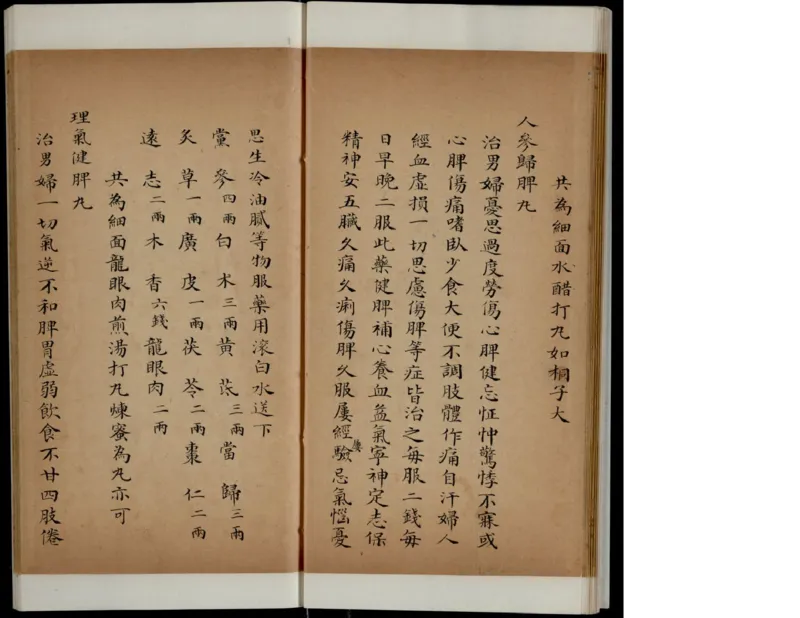 共為細面水醋打丸如桐子大
人參歸脾丸
治男婦憂思過度勞傷心脾健忘怔忡驚悸不寐或
心脾傷痛嗜臥少食大便不調肢體作痛自汗婦人
經血虛損一切思慮傷脾等症皆治之每服二錢每
日早晚二服此藥健脾補心養血益氣寧神定志保
精神安五臟久痛久痢傷脾久服屢經驗忌氣惱憂
屢
思生冷油膩等物服藥用滾白水送下
黨參四兩白术三兩黃茋三兩當歸三兩
炙草一兩廣皮一兩茯苓二兩棗仁二兩
遠志二兩木香六錢龍眼肉二兩
共為細面龍眼肉煎湯打丸煉蜜為丸亦可
理氣健脾丸
治男婦一切氣逆不和脾胃虛弱飲食不甘四肢倦